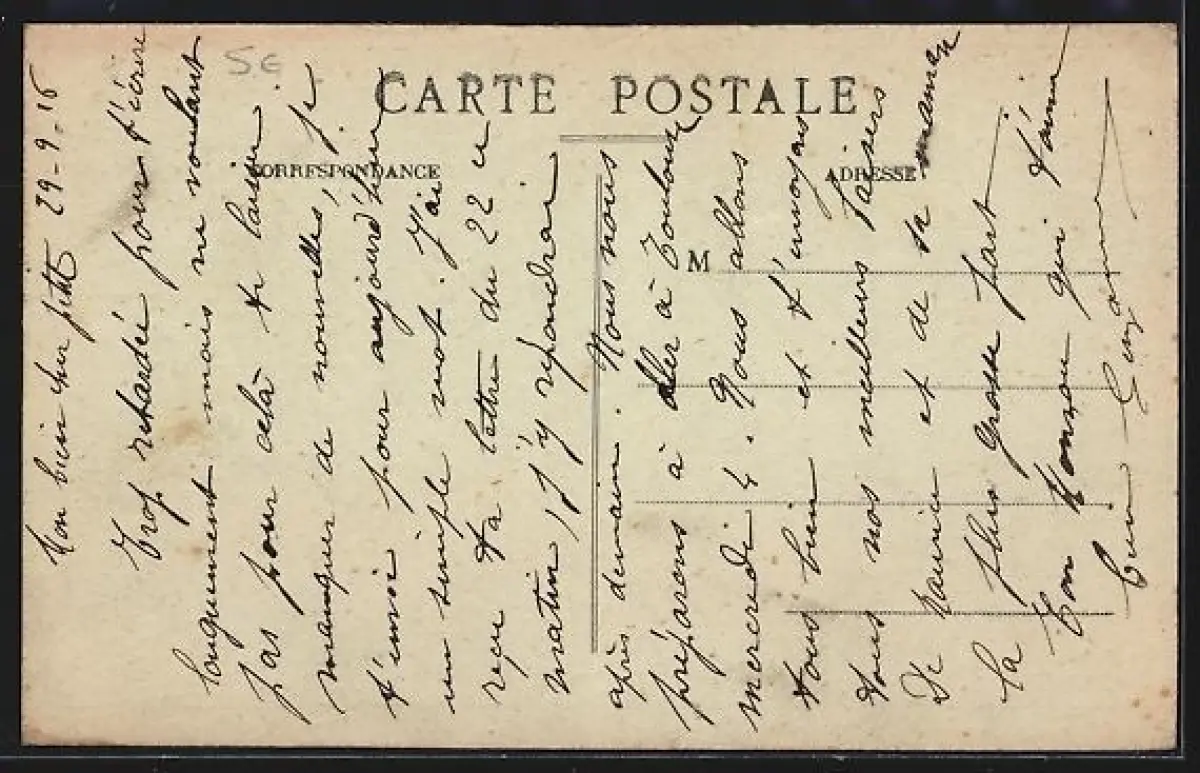 CARTE POSTALE
CORRESPONDANCE
ADRESSE
M
29-9-16
Mon bien cher petit
Trop retardée pour t'écrire
longuement mais ne voulant
pas pour celà te laisser
manquer de nouvelles, je
t'envoie pour aujourd'hui
un simple mot. J'ai
reçu ta lettre du 22 et
matin, j'y répondrai
après demain. Nous nous
préparons à aller à Toulouse
mercredi 4. Nous allons
tous bien et t'envoyons
tous nos meilleurs baisers
De Maurice et de ta maman
la plus grosse part
Ton qui t'aime
bien